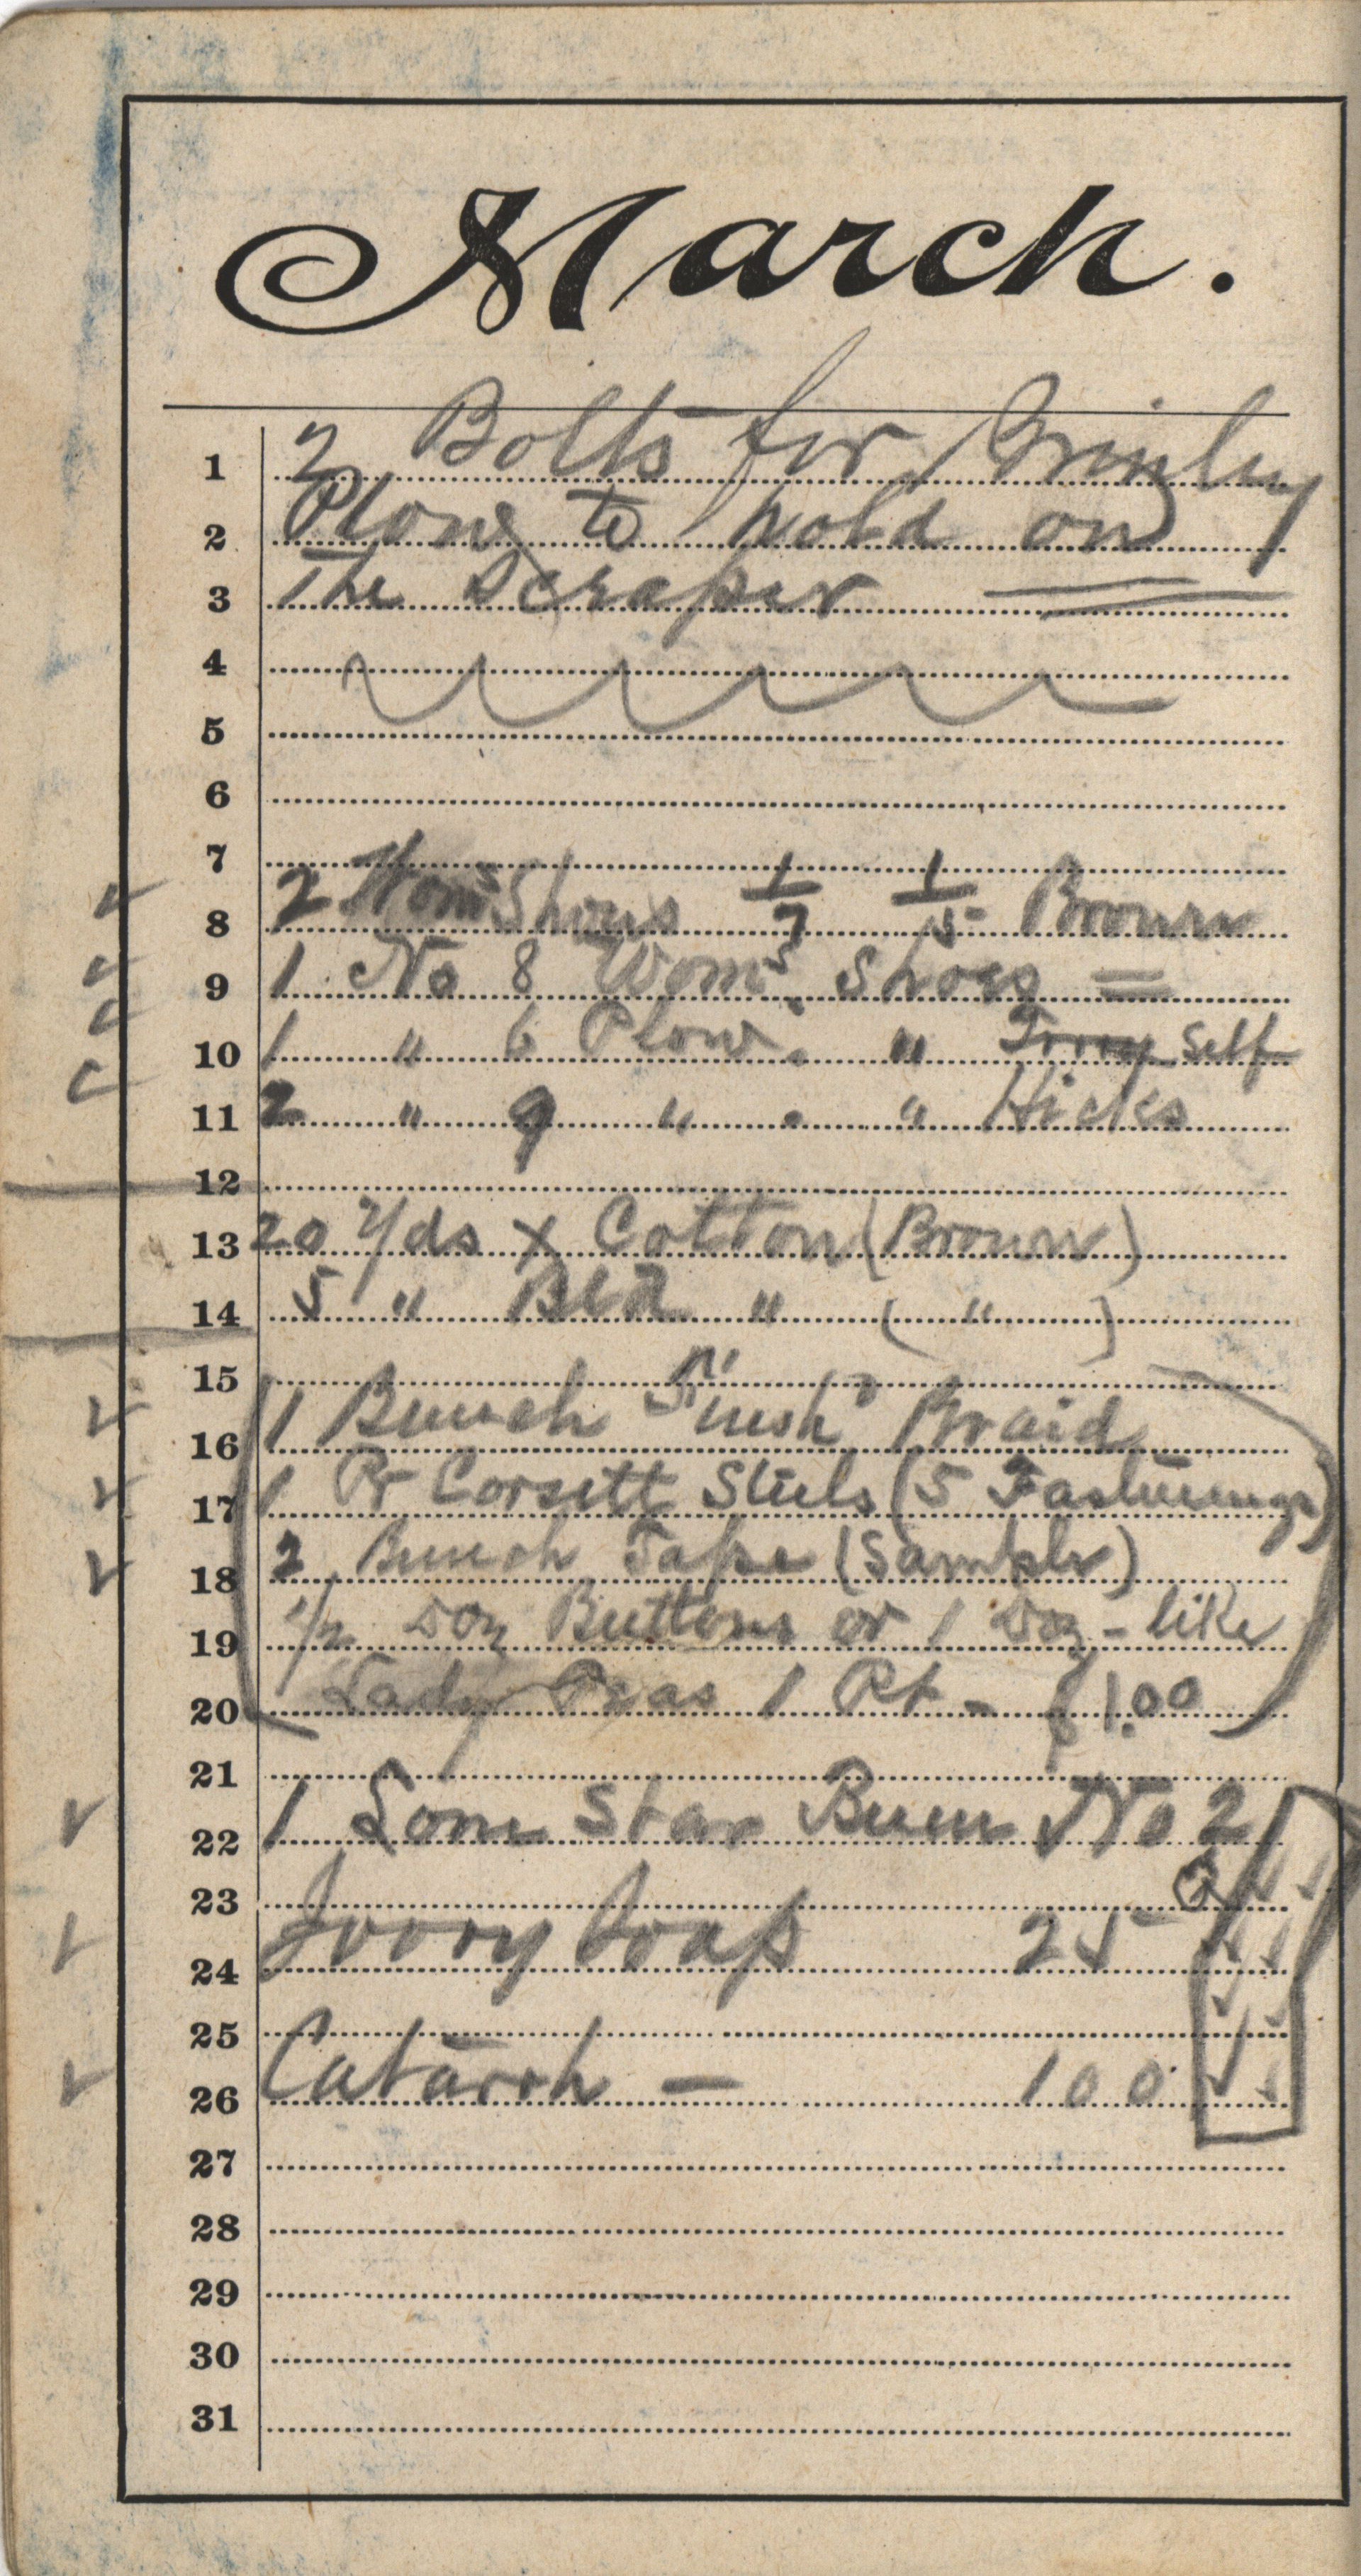 March.
1 2 Bolts for Brinley
2 Plow to hold on
3 The Scraper
4
5
6
7
8 2 Wom's Shoes 1/7 1/5 Brown
9 1 No 8 Wom's Shoes =
10 1 " 6 Plow. " Self
11 2 " 9 " . " Hicks
12
13 20 Yds x Cotton (Brown)
14 5 " Bld " ( " )
15
16 1 Bunch Braid
17 1 Pr Corsett Steels (5 Fastenings)
18 2 Bunch Tape (Sample)
19 1/2 Doz Buttons or 1 Doz - like
20 Lady Peas 1 Pt - $1.00
21
22 1 Lone Star No 2
23
24 Ivory Soap 25
25
26 Catarrh — 100
27
28
29
30
31